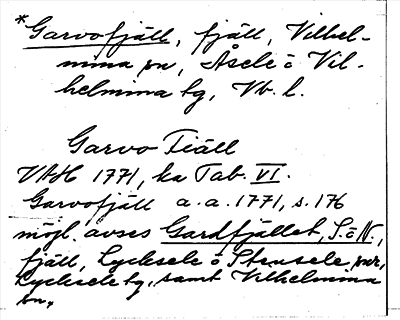 *Garvofjäll, fjäll, Vilhel-
mina sn, Åsele o Vil-
helmina tg, Vb. l.
Garvo Fiäll
VAH 1771, ka Tab. VI.
Garvofjäll a. a. 1771, s. 176
möjl. avses Gardfjället, S. o N.,
fjäll, Lycksele o Stensele snr,
Lycksele tg, samt Vilhelmina
sn.